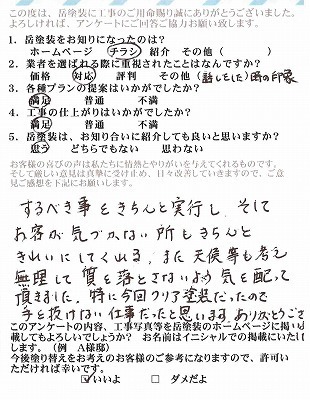 この度は、岳塗装に工事のご用命賜り誠にありがとうございました。
よろしければ、アンケートにご回答ご協力お願い致します。
1. 岳塗装をお知りになったのは?
ホームページ チラシ 紹介 その他( )
2. 業者を選ばれる際に重視されたことはなんですか?
価格 対応 評判 その他(話しをした時の印象
3. 各種プランの提案はいかがでしたか?
満足 普通 不満
4. 工事の仕上がりはいかがでしたか?
満足 普通 不満
5. 岳塗装は、お知り合いに紹介しても良いと思いますか?
思う どちらでもない 思わない
お客様の喜びの声は私たちに情熱とやりがいを与えてくれるものです。
そして厳しい意見は真摯に受け止め、日々改善していきますので、ご意
見ご感想を下記にお願いします。
するべき事をきちんと実行し、そして
お客が気づかない所もきちんと
きれいにしてくれる。また天候等も考え
無理して質を落とさないよう気を配って
頂きました。特に今回クリア塗装だったので
手を抜けない仕事だったと思います。ありがとうござ
このアンケートの内容、工事写真等を岳塗装のホームページに掲い
載してもよろしいでしょうか? お名前はイニシャルでの掲載にいたし
します。(例 A様邸)
今後塗り替えをお考えのお客様のご参考になりますので、許可い
ただければ幸いです。
☑いいよ □ ダメだよ